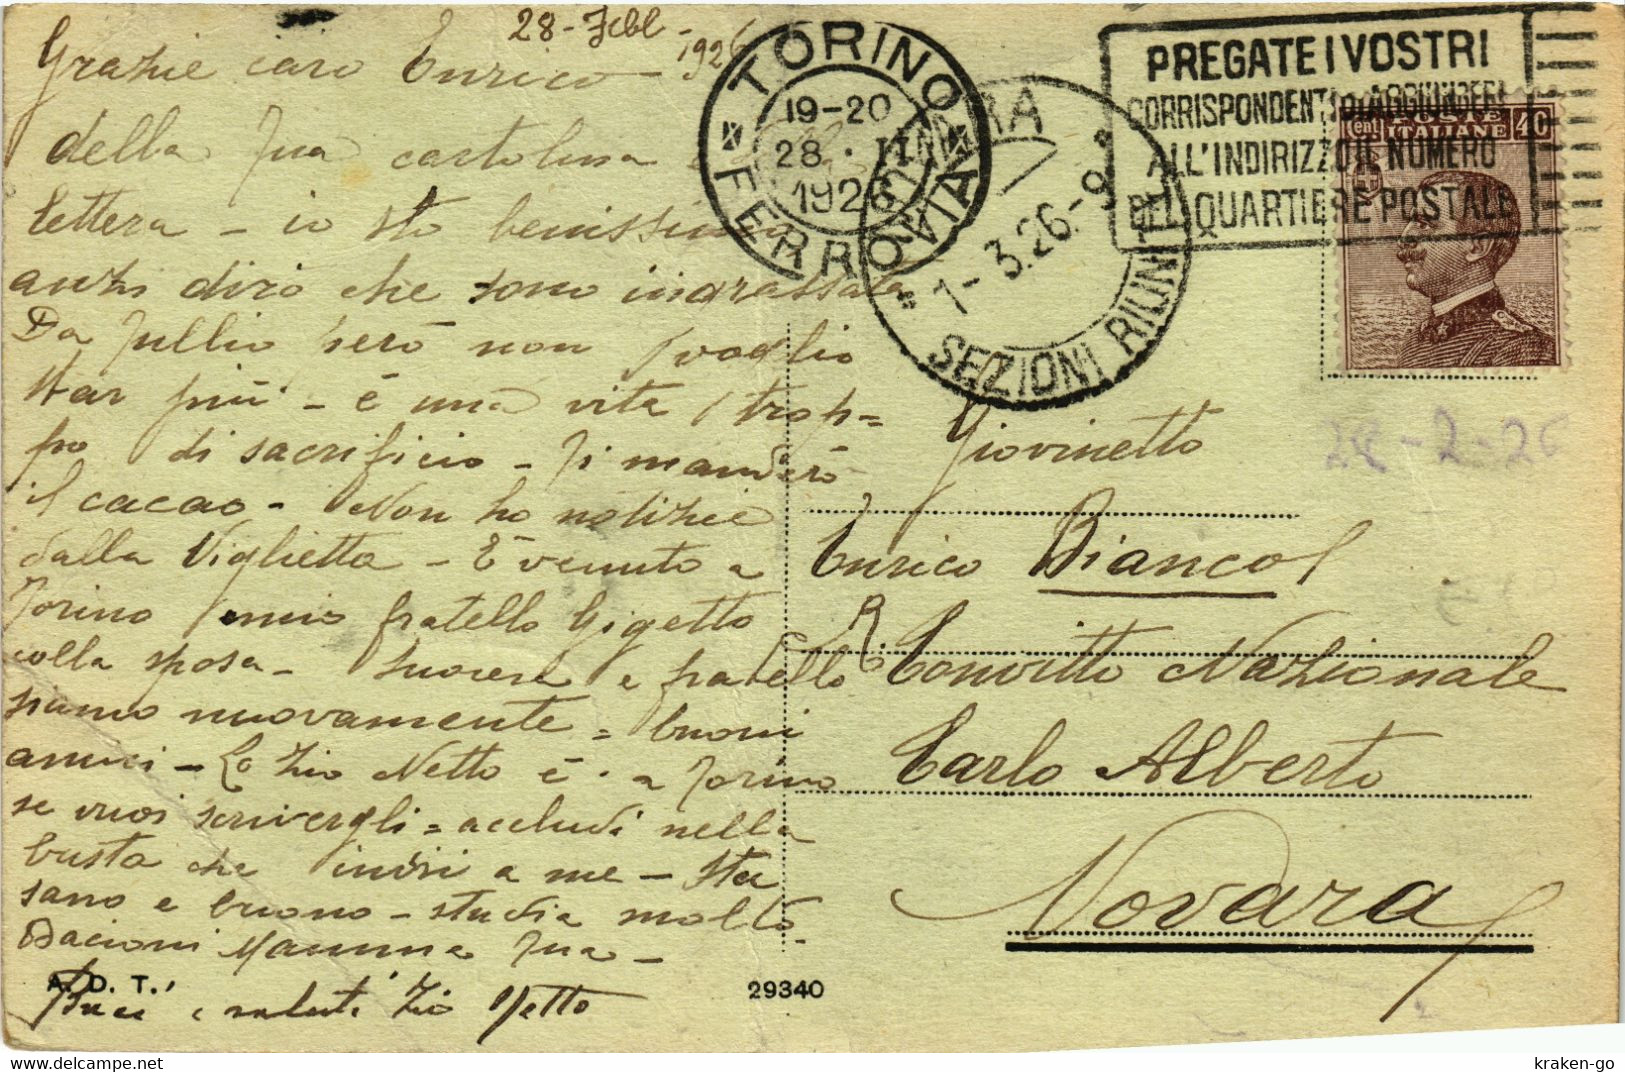 28-Febb-1926
Grazie caro Enrico -
della tua cartolina e
lettera - io sto benissimo
anzi dirò che sono ingrassata
Da Tullio però non voglio
star più - è una vita trop=
po di sacrificio - Ti manderò
il cacao - Non ho notizie
dalla Viglietta - È venuto a
Torino mio fratello Gigetto
colla sposa - suocera e fratello
siamo nuovamente = buoni
amici - Lo Zio Netto è a Torino
se vuoi scrivergli = accludi nella
busta che invii a me - Sta
sano e buono - studia molto -
Bacioni Mamma tua -
Baci e saluti Zio Netto
A. D. T.
29340
TORINO
19-20
28 . II
1926
FERROVIA
NOVARA
1-3.26.-9
SEZIONI RIUNITE
PREGATE I VOSTRI
CORRISPONDENTI DI AGGIUNGERE
ALL'INDIRIZZO IL NUMERO
DEL QUARTIERE POSTALE
Cent
POSTE
ITALIANE
40
28-2-26
Giovinetto
Enrico Biancol
R. Convitto Nazionale
Carlo Alberto
Novara
kraken-go
delcampe.net